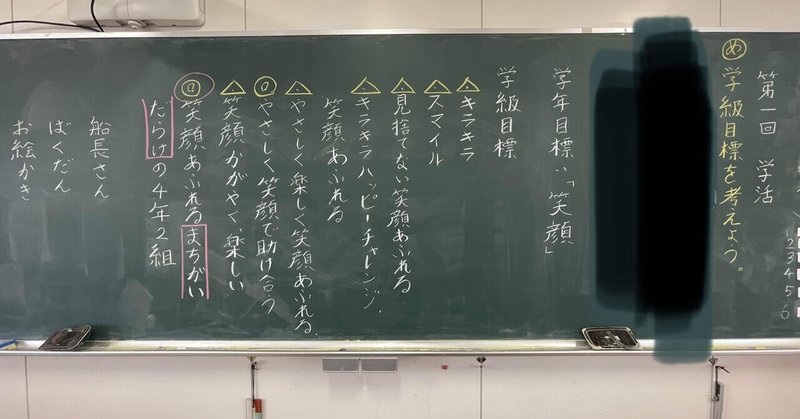 第一回 学活
め 学級目標を考えよう。
学年目標：「笑顔」
学級目標
キラキラ
スマイル
見捨てない笑顔あふれる
キラキラハッピーチャレンジ
笑顔あふれる
やさしく楽しく笑顔あふれる
やさしく笑顔で助け合う
笑顔かがやく、楽しい
回 笑顔あふれるまちがい
だらけの4年2組
船長さん
ばくだん
お絵かき
1
2
3
4
5
6